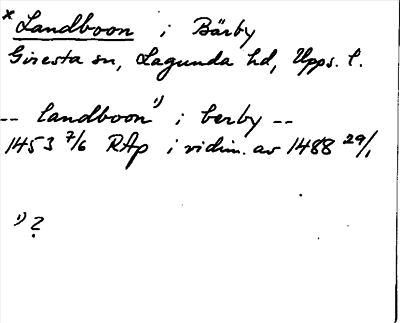 * Landboon i Bärby
Giresta sn, Lagunda hd, Upps. l.
-- landboon ¹) i berby --
1453 7/6 RAp i vidim. av 1488 29/1
¹) ?